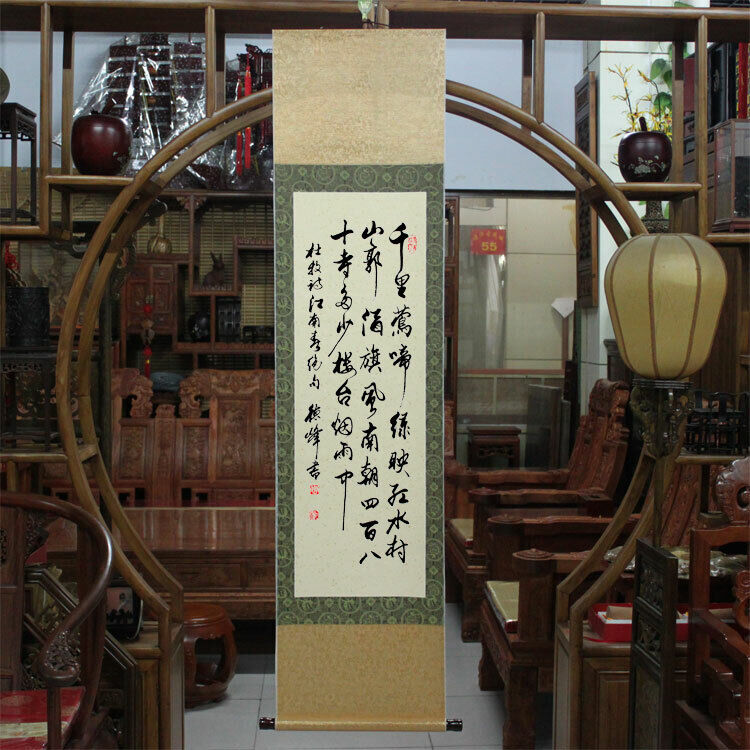 千里莺啼绿映红水村
山郭酒旗风南朝四百八
十寺多少楼台烟雨中
杜牧诗江南春绝句 德峰书
55